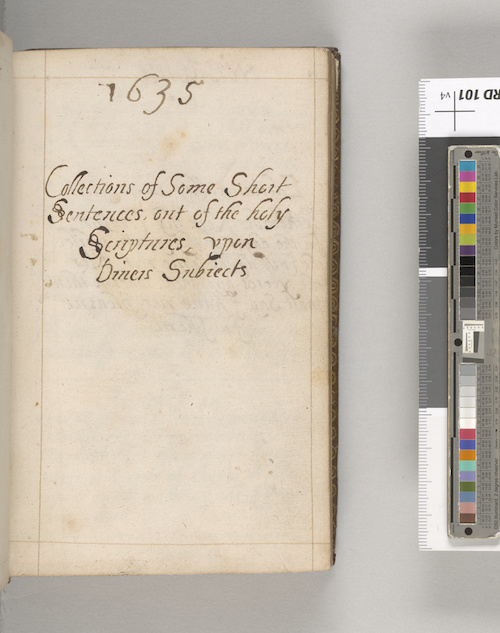 1635
Collections of Some Short
Sentences, out of the holy
Scriptures, vpon
Diuers Subiects
RD 101
v4